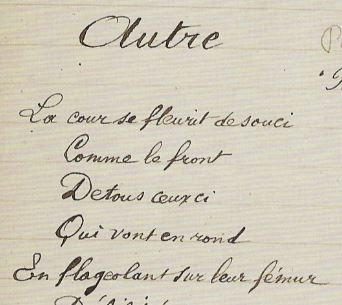 Autre
La cour se fleurit de souci
Comme le front
De tous ceux ci
Qui vont en rond
En flageolant sur leur fémur